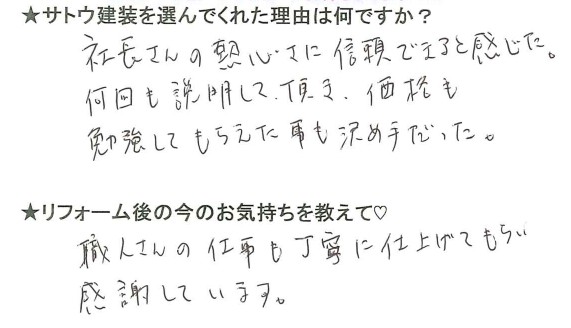 ★サトウ建装を選んでくれた理由は何ですか？
社長さんの熱心さに信頼できると感じた。
何回も説明して頂き、価格も
勉強してもらえた事も決め手だった。
★リフォーム後の今のお気持ちを教えて♡
職人さんの仕事も丁寧に仕上げてもらい
感謝しています。